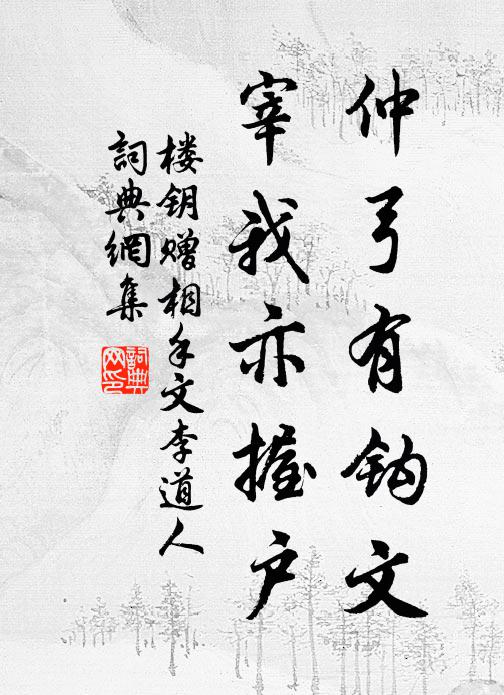 仲弓有钩文
宰我亦握户
楼钥赠相手文李道人
詞典網集
詞典网印